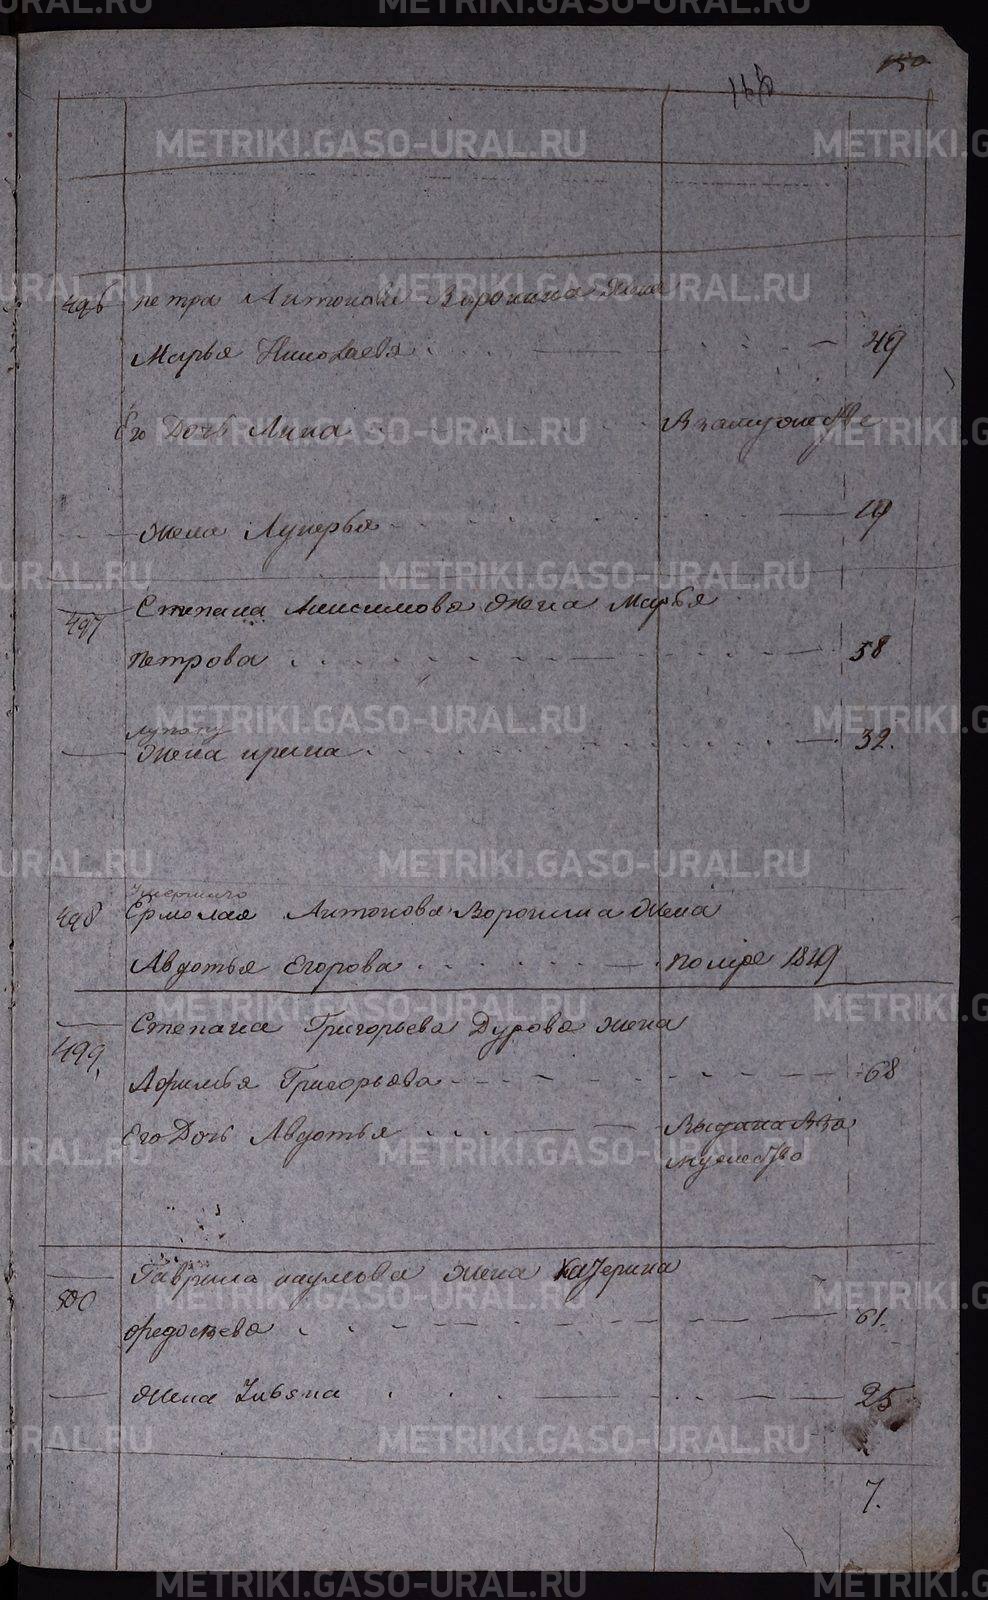 150
496 петра Антонова Воронина Жена
Марья Николаева 49
Его Дочь Анна Взамужестве
жена Лукерья 19
497 Степана Анисимова Жена Марья
петрова 58
Жена ирина 32.
умершаго
498 Ермолая Антонова Воронина Жена
Авдотья Егорова помре 1849
499, Степана Григорьева Дурова жена
Афимья Григорьева 68
Его Дочь Авдотья Выдана вза
мужество
500 Гаврила наумова жена Катерина
федосеева 61.
Жена 25
7.
METRIKI.GASO-URAL.RU